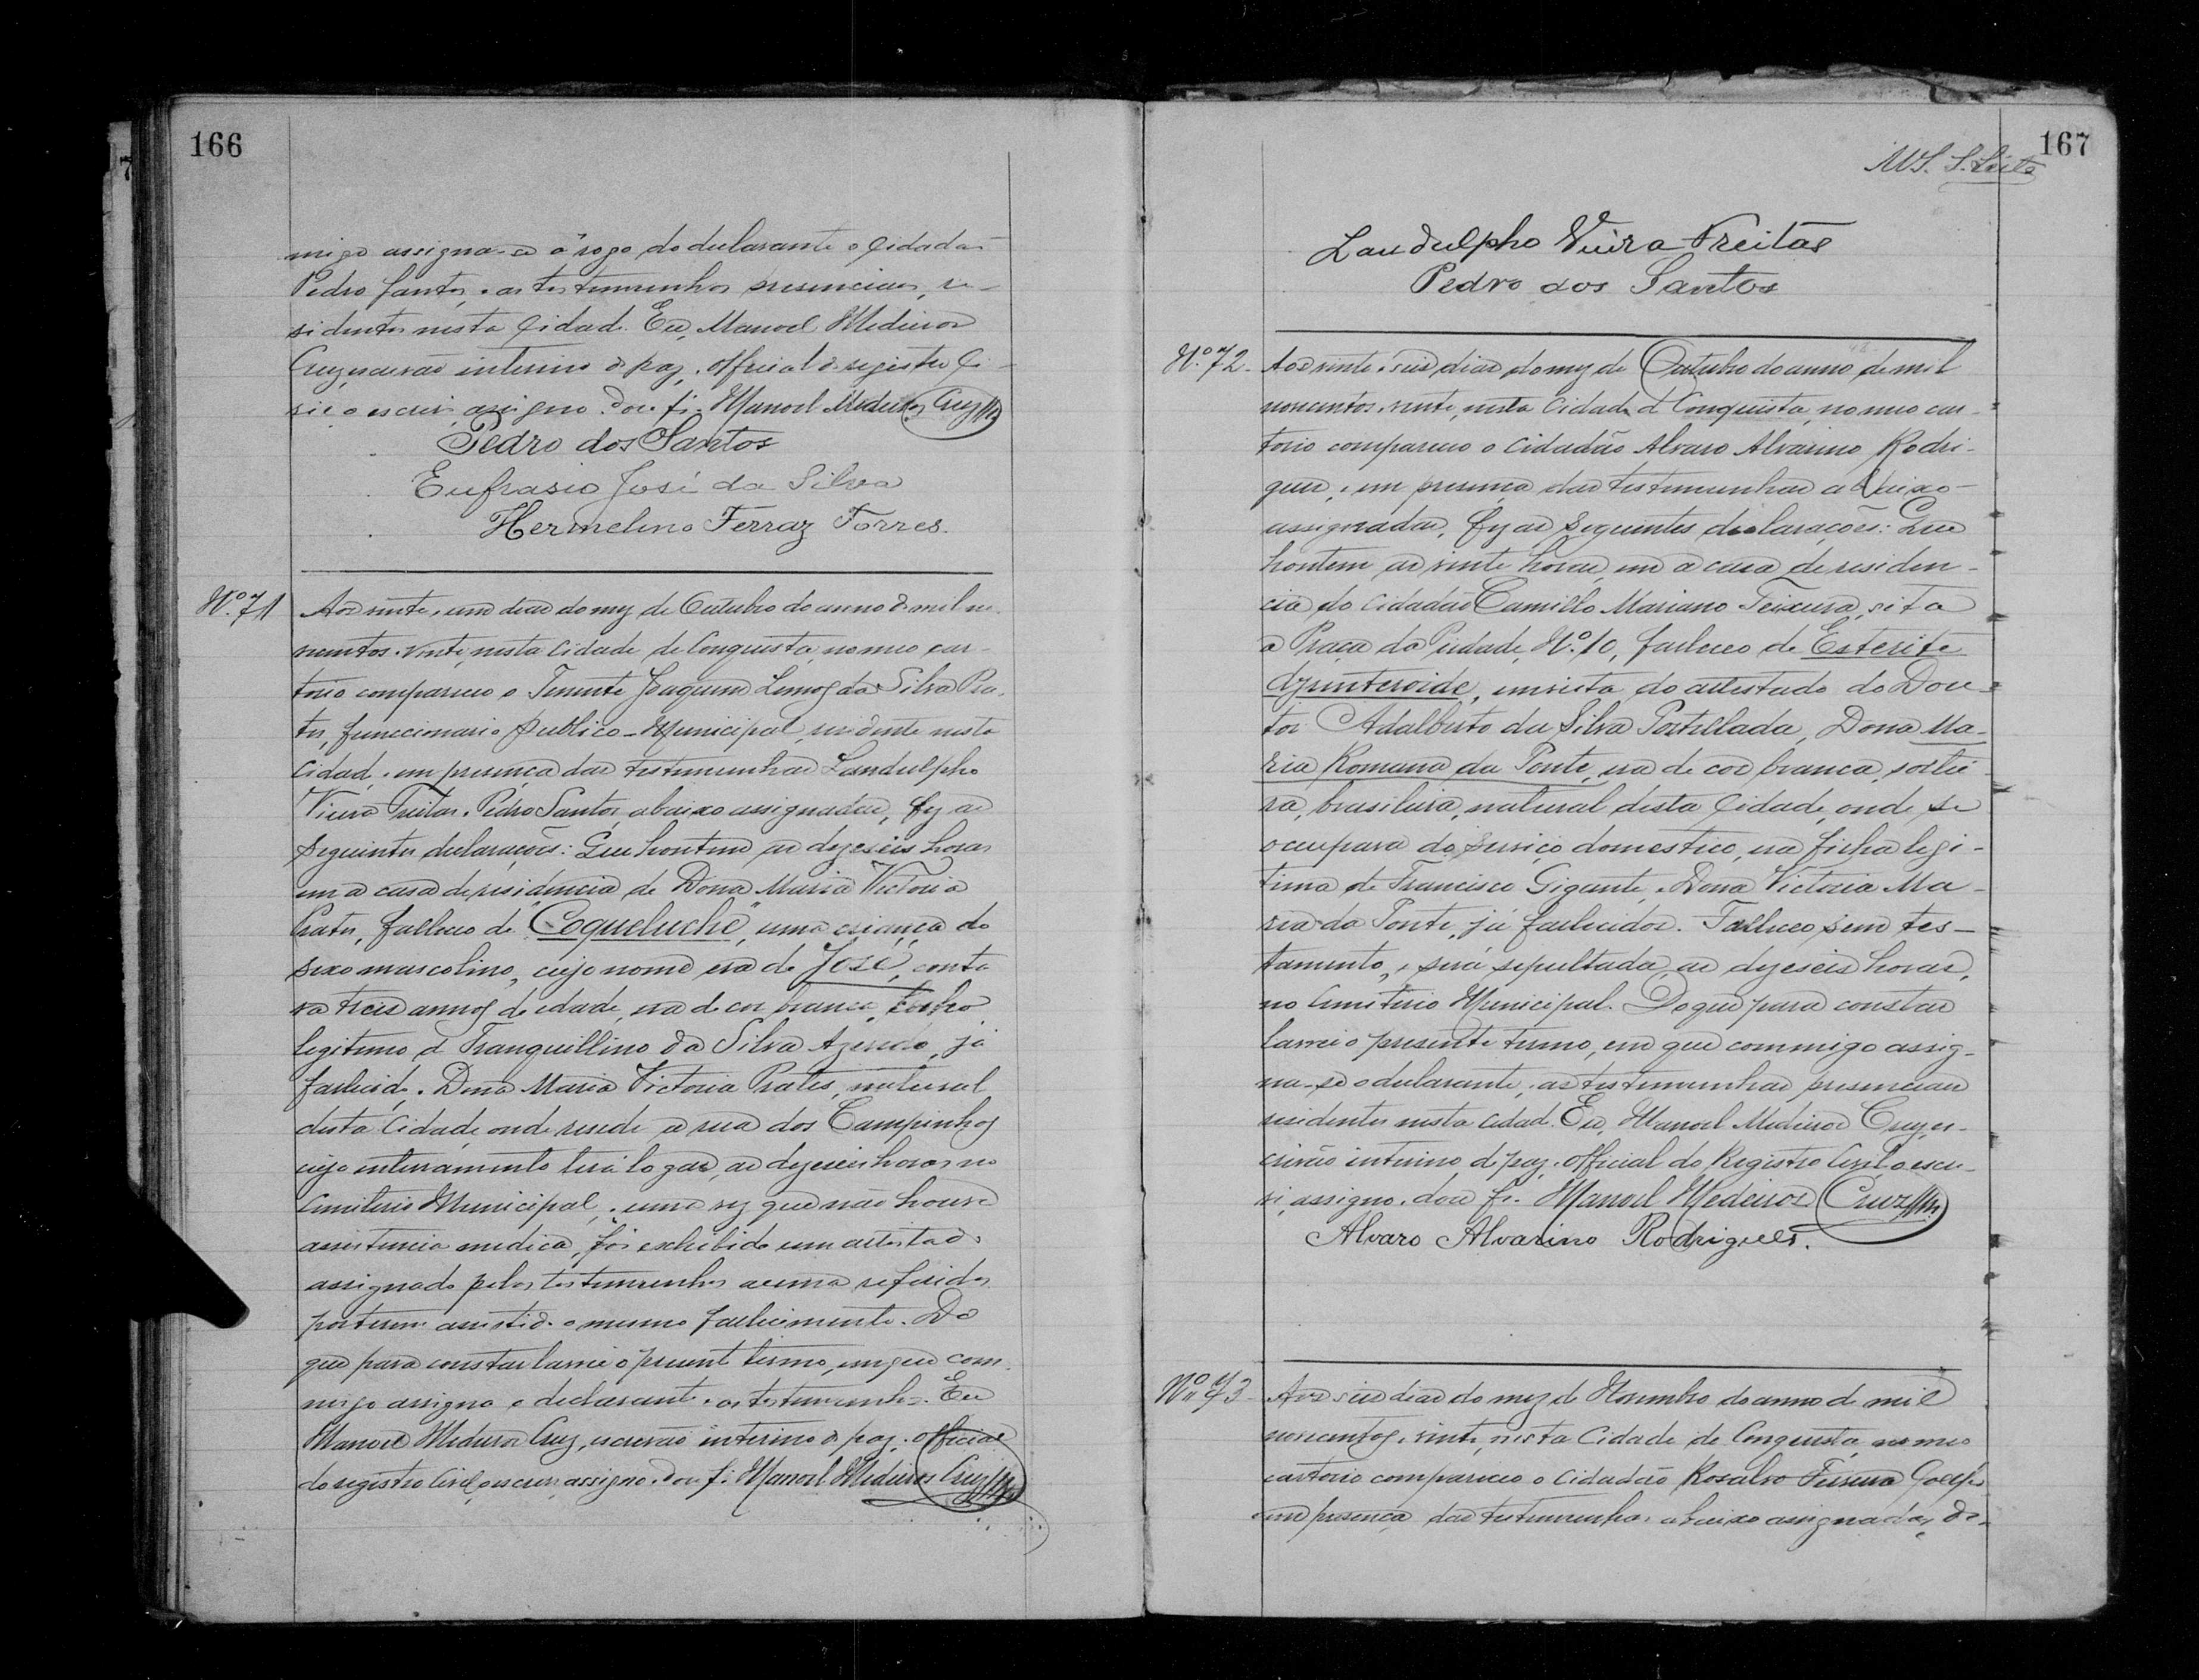 166
migo assigna-se a rogo do declarante o Cidadão
Pedro Santos, e as testemunhas presenciaes, re-
sidentes nesta Cidade. Eu, Manoel Medeiros
Cruz, escrivão interino de paz, e official do registro Ci-
vil o escrevi, assigno. Dou fé. Manoel Medeiros Cruz
Pedro dos Santos
Eufrasio José da Silva
Hermelino Ferraz Torres.
Nº 71
Aos vinte e um dias do mez de Outubro do anno de mil no-
vecentos e vinte, nesta Cidade de Conquista, no meu car-
torio compareceu o Tenente Joaquim Lemos da Silva Pra-
tes, funccionario Publico-Municipal, residente nesta
Cidade, e em presença das testemunhas Landulpho
Vieira Freitas e Pedro Santos, abaixo assignadas, fez as
seguintes declarações: Que hontem as dezeseis horas
em a casa de residencia de Dona Maria Victoria
Prates, falleceu de "Coqueluche", uma criança do
sexo mascolino, cujo nome era de José, conta
va treis annos de edade, era de cor branca,
legitimo de Tranquillino da Silva Azevedo, já
fallecido e Dona Maria Victoria Prates, natural
desta Cidade, onde reside a rua dos Campinhos
cujo enterramento terá logar, as dezeseis horas no
Cimiterio Municipal, e uma vez que não houve
assistencia medica, foi exhibido um attestado
assignado pelas testemunhas acima referidas
por terem assistido o mesmo fallecimento. Do
que para constar lavrei o presente termo, em que com-
migo assigna o declarante e as testemunhas. Eu
Manoel Medeiros Cruz, escrivão interino de paz, e official
do registro Civil, o escrevi, assigno. Dou fé. Manoel Medeiros Cruz
167
Landulpho Vieira Freitas
Pedro dos Santos
Nº 72-
Aos vinte e seis dias do mez de Outubro do anno de mil
novecentos e vinte, nesta Cidade de Conquista, no meu car-
torio compareceu o Cidadão Alvaro Alvarino Rodri-
gues, e em presença das testemunhas abaixo-
assignadas, fez as seguintes declarações: Que
hontem as vinte horas, em a casa de residen-
cia do Cidadão Camillo Mariano Teixeira, sita
a Praça da Piedade, Nº 10, falleceu de Esterite
dysinteroide, em vista do attestado do Dou-
tor Adalberto da Silva Portellada, Dona Ma-
ria Romana da Ponte, era de cor branca, soltei-
ra, brasileira, natural desta Cidade, onde se
occupava do serviço domestico, era filha legi-
tima de Francisco Gigante, e Dona Victoria Ma-
ria da Ponte, já fallecidos. Falleceu sem tes-
tamento, e será sepultada, as dezeseis horas,
no Cimiterio Municipal. Do que para constar
lavrei o presente termo, em que commigo assig-
na-se o declarante, e as testemunhas presenciaes
residentes nesta Cidade. Eu, Manoel Medeiros Cruz, es-
crivão interino de paz, e official do Registro Civil o escre-
vi, assigno e dou fé. Manoel Medeiros Cruz
Alvaro Alvarino Rodrigues.
Nº 73-
Aos seis dias do mez de Novembro do anno de mil
novecentos e vinte, nesta Cidade de Conquista, no meu
cartorio compareceu o Cidadão Rosalvo Ferreira
em presença das testemunhas abaixo assignadas, de-